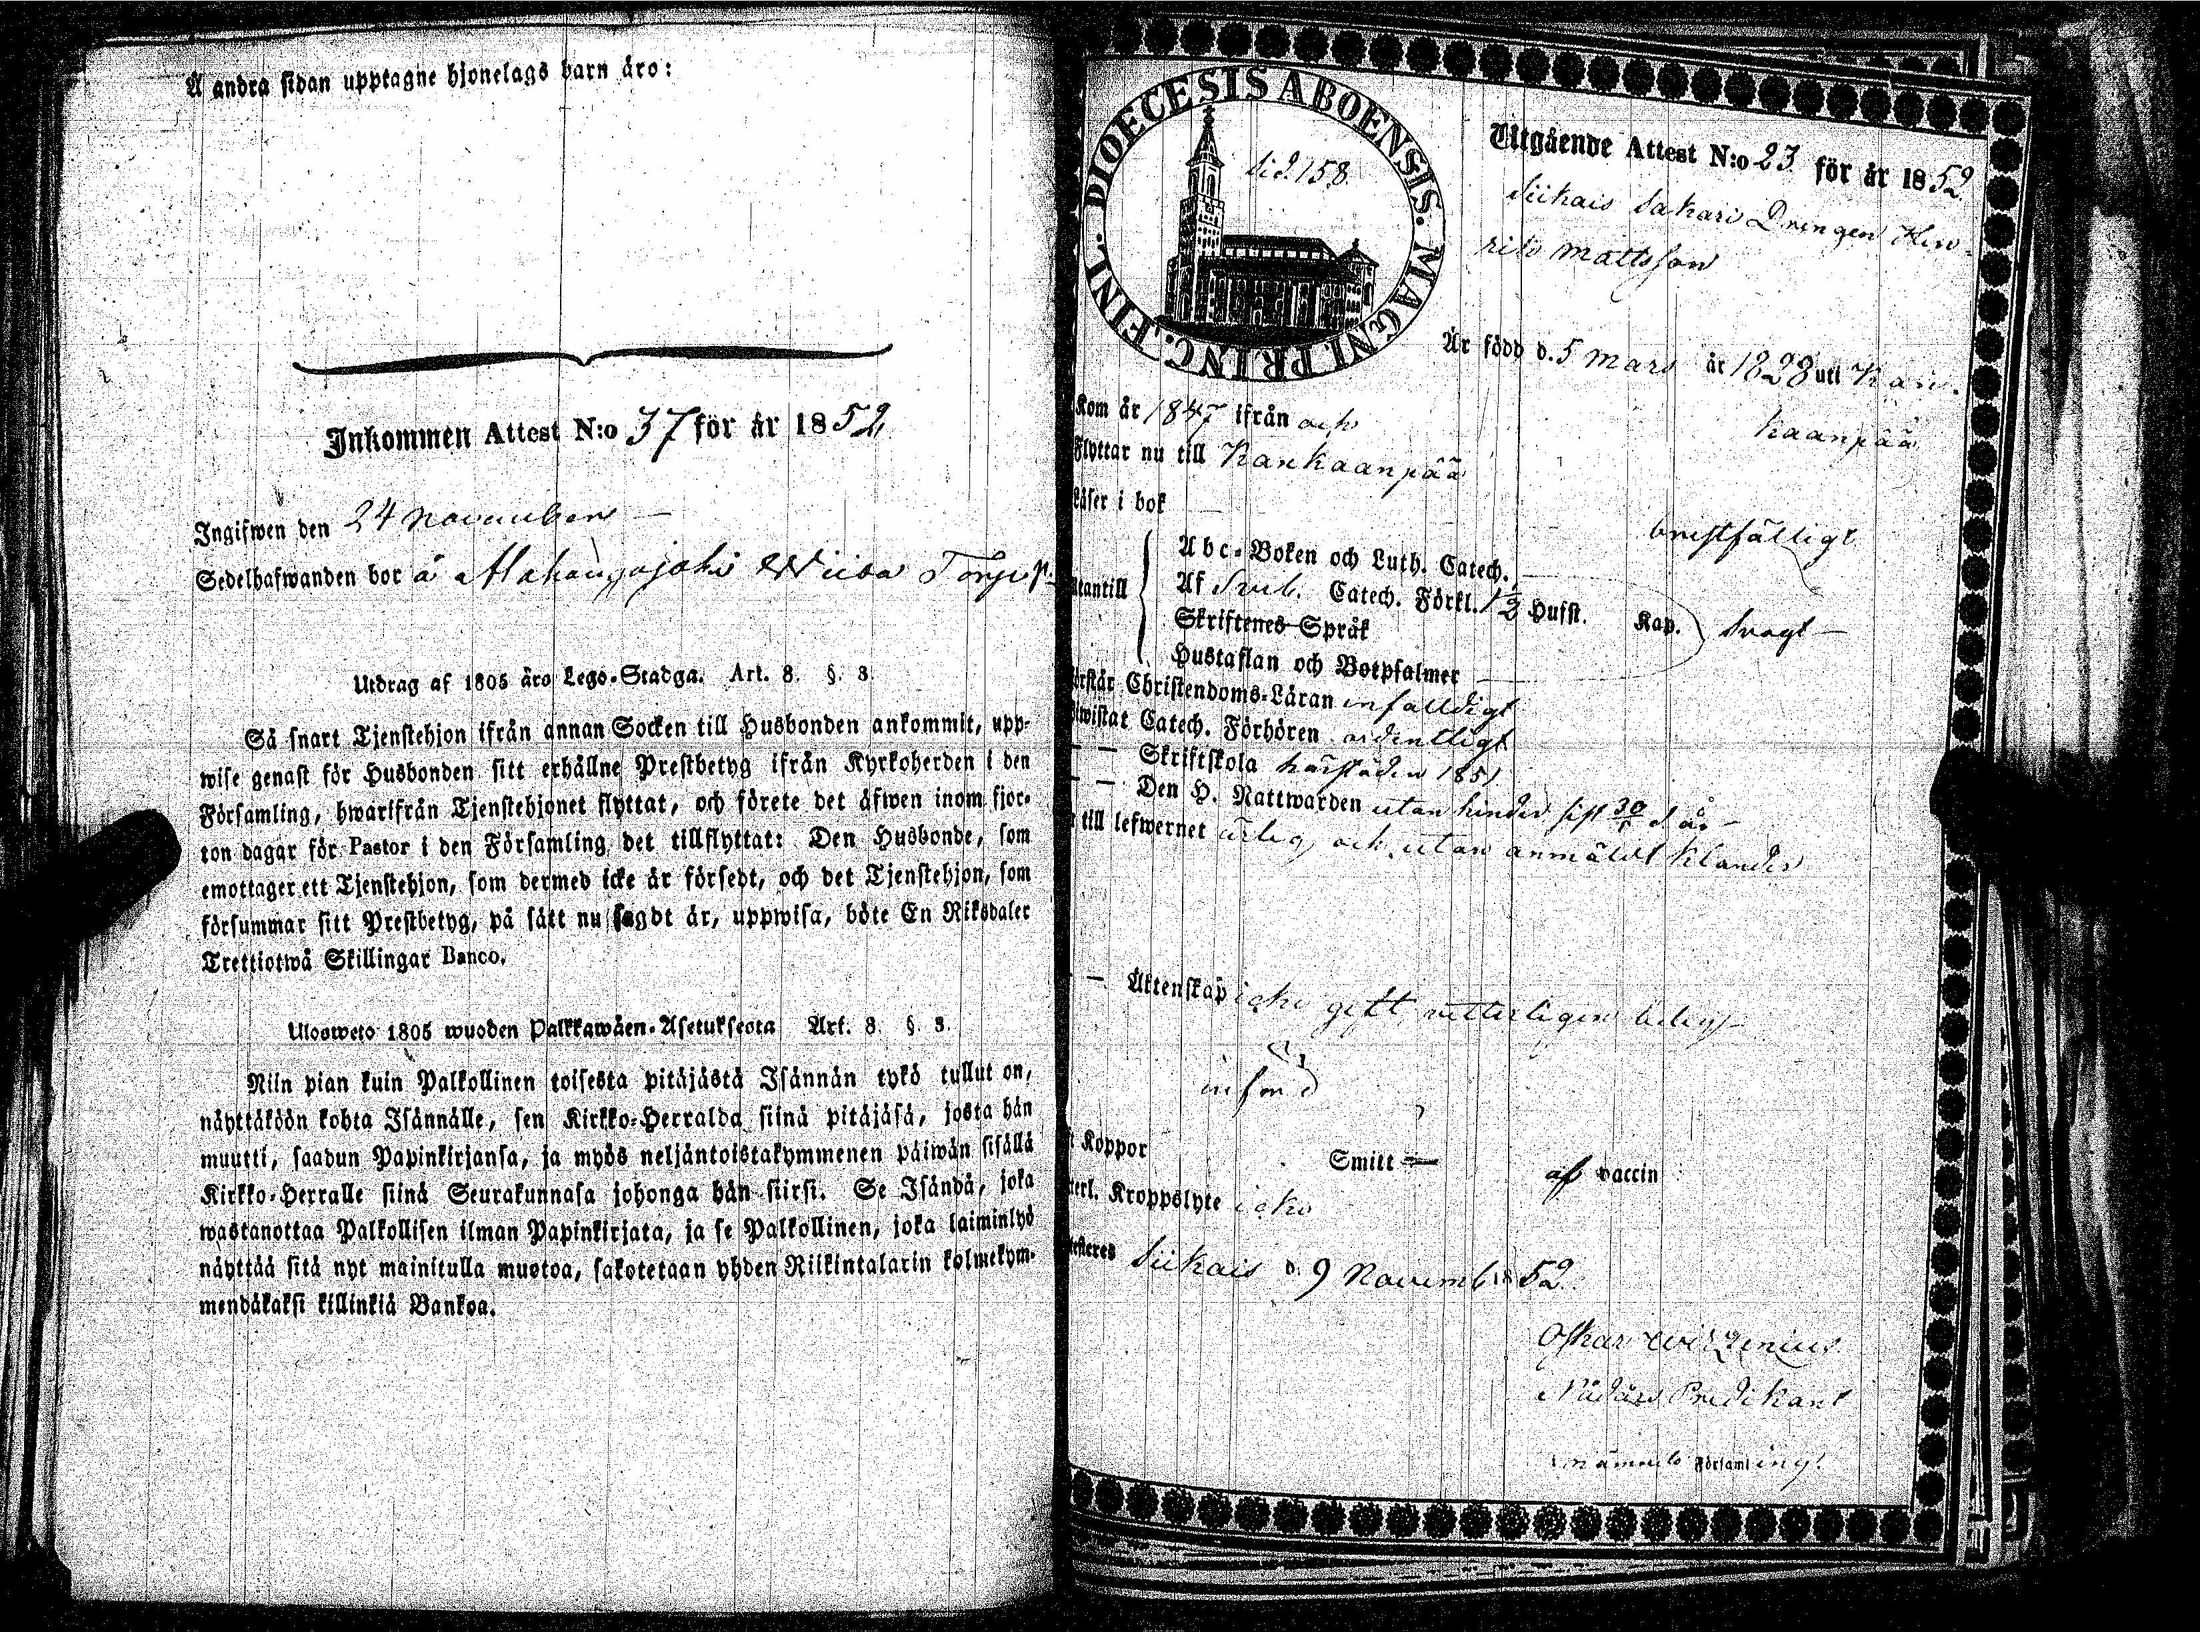 Å andra sidan upptagne hjonelags barn äro:
Inkommen Attest N:o 37 för år 1852
Ingifwen den 24 November
Sedelhafwanden bor å Torp
Utdrag af 1805 års Lego-Stadga. Art. 8. §. 3.
Så snart Tjenstehjon ifrån annan Socken till Husbonden ankommit, upp-
wise genast för Husbonden sitt erhållne Prestbetyg ifrån Kyrkoherden i den
Församling, hwarifrån Tjenstehjonet flyttat, och förete det äfwen inom fjor-
ton dagar för Pastor i den Församling det tillflyttat: Den Husbonde, som
emottager ett Tjenstehjon, som dermed icke är försedt, och det Tjenstehjon, som
försummar sitt Prestbetyg, på sätt nu sagdt är, uppwisa, böte En Riksdaler
Trettiotwå Skillingar Banco.
Ulosweto 1805 wuoden Palkkawäen-Asetuksesta Art. 8. §. 3.
Niin pian kuin Palkollinen toisesta pitäjästä Isännän tykö tullut on,
näyttäköön kohta Isännälle, sen Kirkko-Herralda siinä pitäjäsä, josta hän
muutti, saadun Papinkirjansa, ja myös neljäntoistakymmenen päiwän sisällä
Kirkko-Herralle siinä Seurakunnasa johonga hän siirsi. Se Isändä, joka
wastanottaa Palkollisen ilman Papinkirjata, ja se Palkollinen, joka laiminlyö
näyttää sitä nyt mainitulla muotoa, sakotetaan yhden Riikintalarin kolmekym-
mendäkaksi killinkiä Bankoa.
DIOECESIS ABOENSIS. MAGNI PRINC. FINL.
sid. 158.
Utgående Attest N:o 23 för år 1852
Siikais Sakari Drengen Hen-
rik Mattsson
Är född d. 5 Mars år 1828 uti Kan-
kaanpää
Kom år 1847 ifrån och
Flyttar nu till Kankaanpää
Läser i bok bristfälligt
Utantill
Abc-Boken och Luth. Catech.
Af Sveb. Catech. Förkl. 1 1/2 Hufst. Kap. svagt
Skriftenes Språk
Hustaflan och Botpsalmer
Förstår Christendoms-Läran enfaldigt
Biwistat Catech. Förhören ordentligt
— — Skriftskola härstädes 1851
— — Den H. Nattwarden utan hinder sist d. år
till lefwernet ärlig och utan anmäldt klander
— — Äktenskap icke gift
Koppor Smitt — af vaccin
Kroppslyte icke
Attesteres Siikais d. 9 Novemb 1852.
Oskar Wirzenius
Nådårs Predikant
Församling.